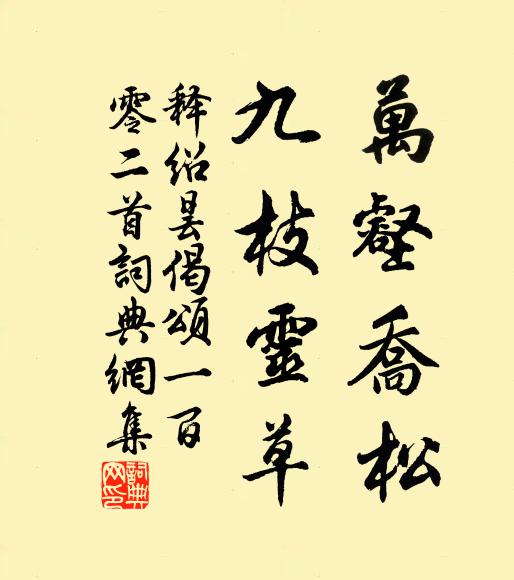 萬壑喬松
九枝靈草
释紹曇偈頌一百
零二首詞典網集
詞典网印